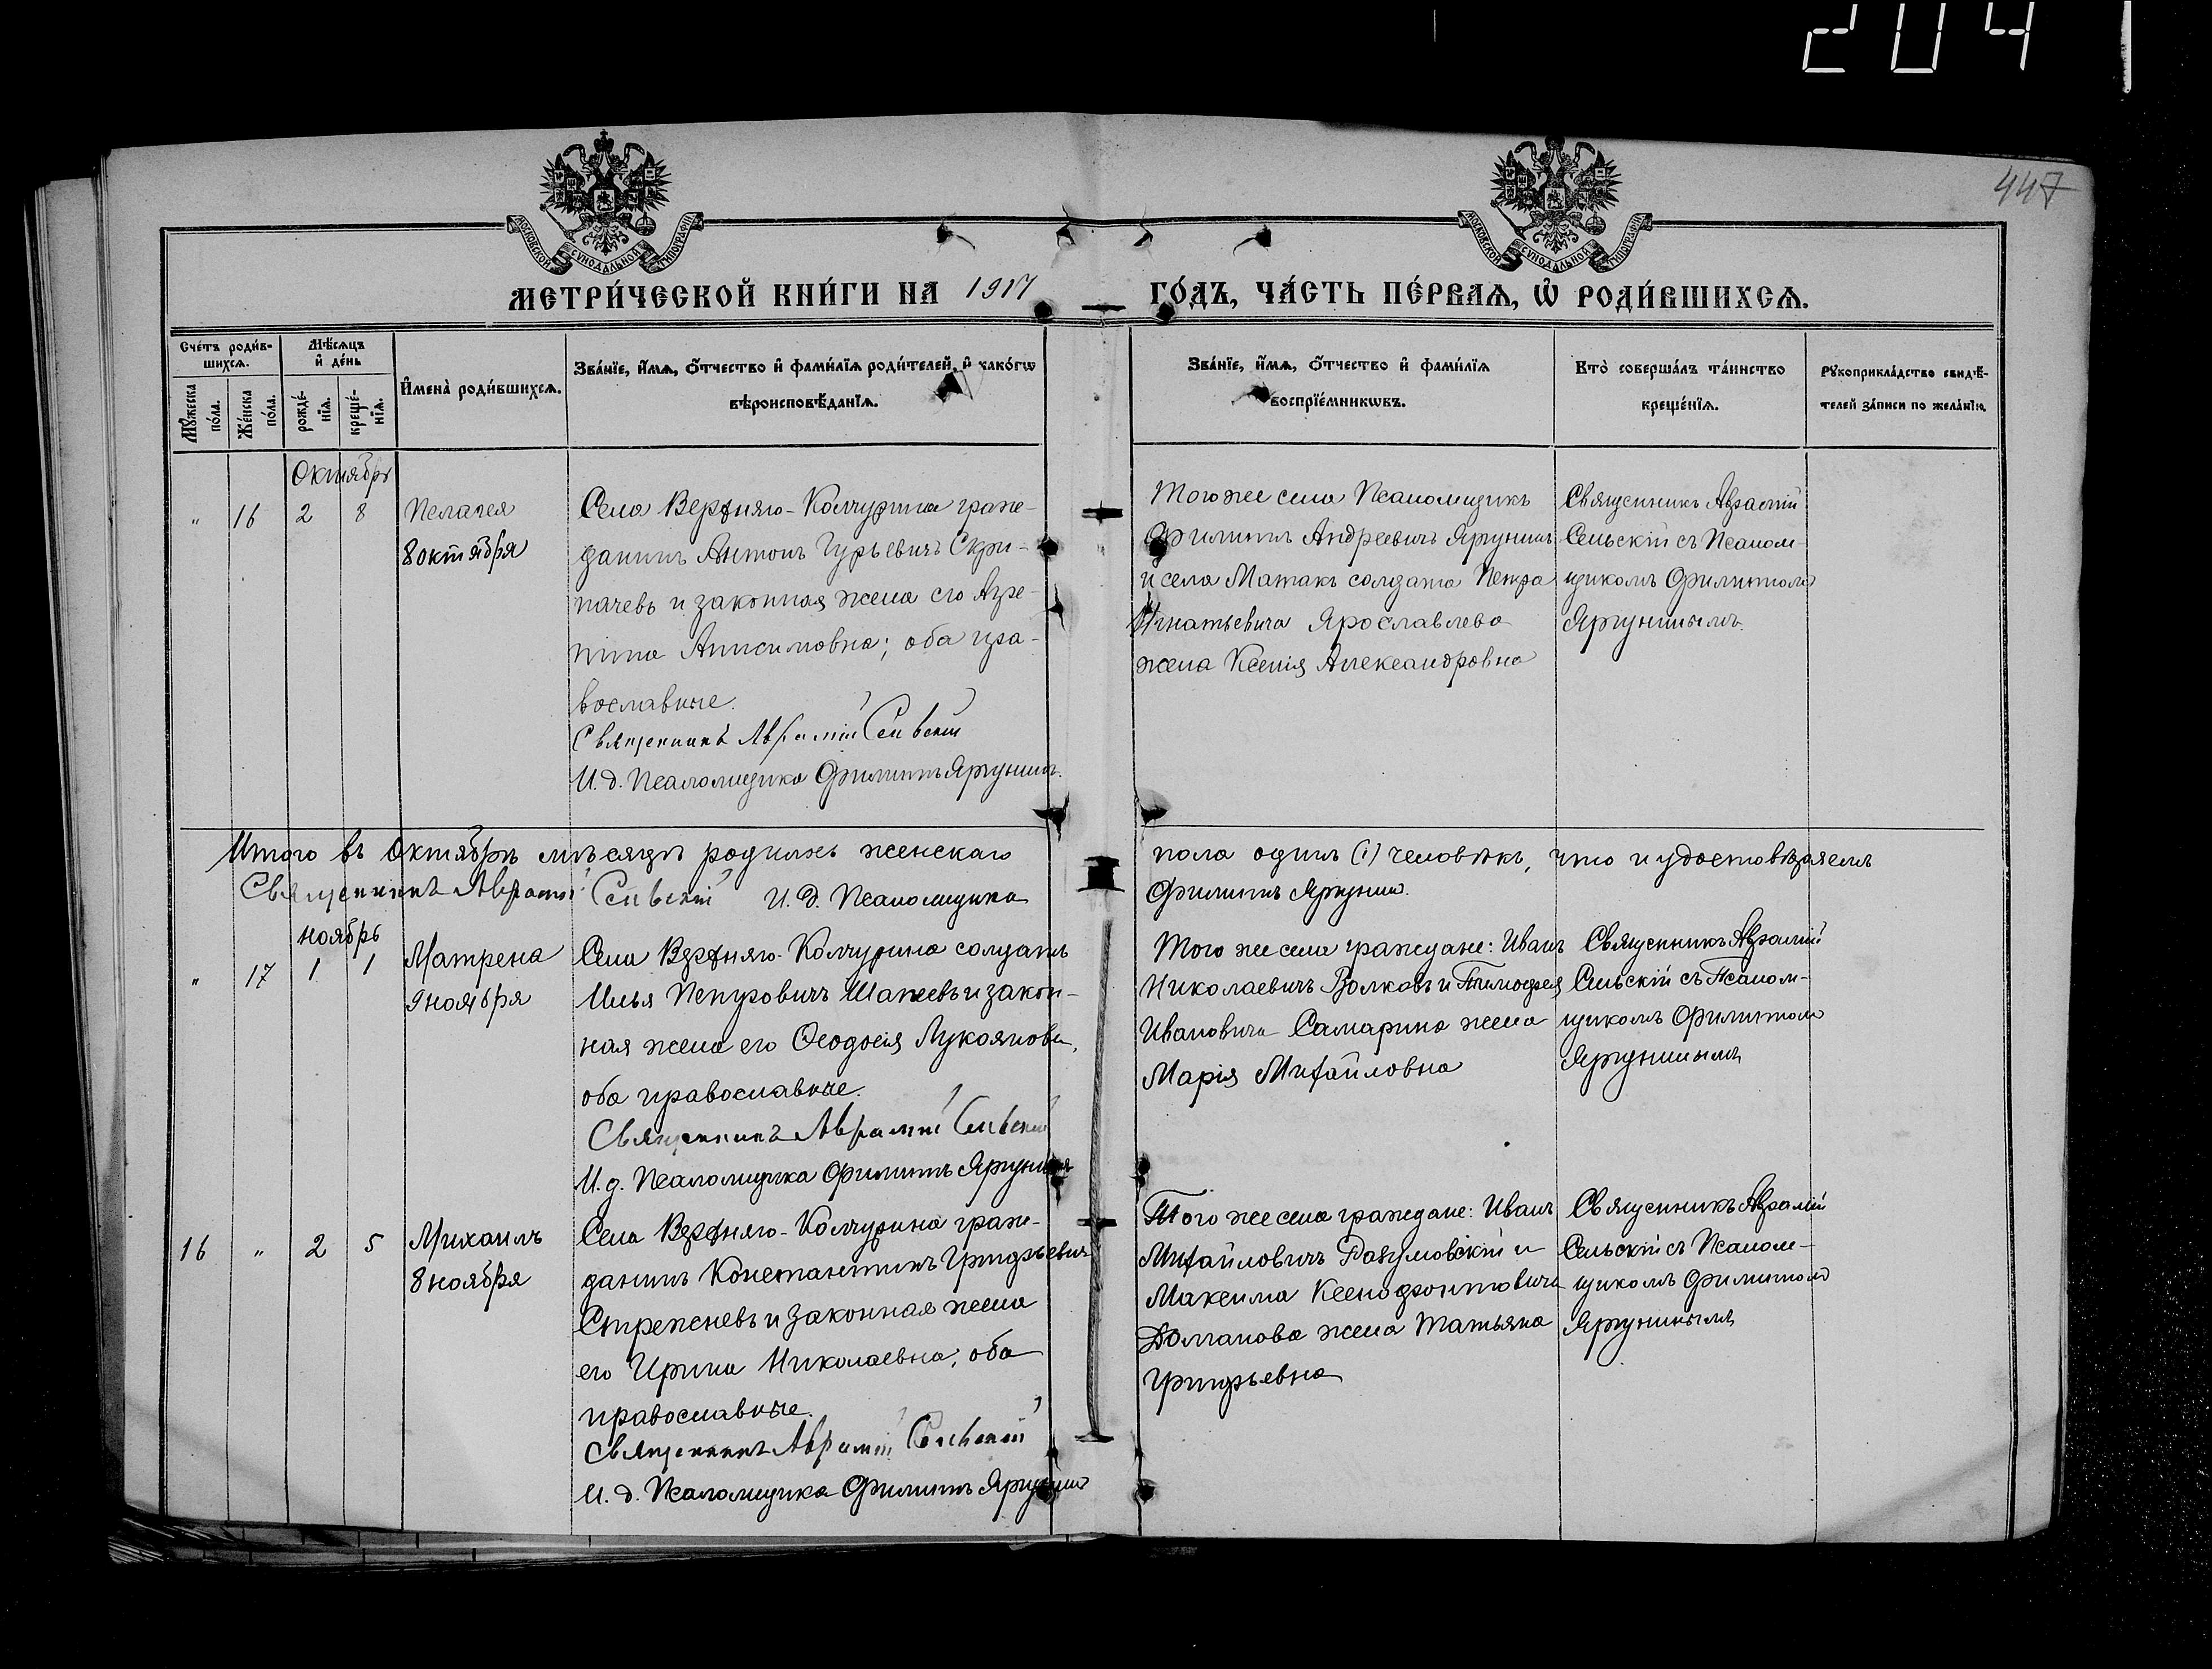 204
447
МОСКОВСКОЙ СѴНОДАЛЬНОЙ ТИПОГРАФІИ
МОСКОВСКОЙ СѴНОДАЛЬНОЙ ТИПОГРАФІИ
МЕТРИ́ЧЕСКОЙ КНИ́ГИ НА 1917 ГО́ДЪ, ЧА́СТЬ ПЕ́РВАѦ, Ѡ҆ РОДИ́ВШИХСѦ.
Сче́тъ роди́в-
шихсѧ.
Мѹ́жеска
по́ла.
Же́нска
по́ла.
Мѣ́сѧцъ
и҆ де́нь
рожде́-
нїѧ.
креще́-
нїѧ.
И҆мена̀ роди́вшихсѧ.
Зва́нїе, и҆́мѧ, ѻ҆́тчество и҆ фами́лїѧ роди́телей, и҆ како́гѡ
вѣроисповѣ́данїѧ.
Зва́нїе, и҆́мѧ, ѻ҆́тчество и҆ фами́лїѧ
воспрїе́мникѡвъ.
Кто̀ соверша́лъ та́инство
креще́нїѧ.
Рꙋкоприкла́дство свидѣ́-
телей за́писи по жела́нїю.
Октябрь
" 16 2 8
Пелагея
8 октября
Села Верхняго-Колчурина граж-
данинъ Антонъ Гурьевичъ Скри-
пачевъ и законная жена его Агре-
пина Анисимовна; оба пра-
вославные.
Священникъ Аврамій Сельскій
И.д. Псаломщика Филиппъ Яргунинъ.
Того же села Псаломщикъ
Филиппъ Андреевичъ Яргунинъ
и села Матакъ солдата Петра
Игнатьевича Ярославлева
жена Ксенія Александровна
Священникъ Аврамій
Сельскій съ Псалом-
щикомъ Филиппомъ
Яргунинымъ.
Итого въ Октябрѣ мѣсяцѣ родилось женскаго пола одинъ (1) человѣкъ, что и удостовѣряемъ
Священникъ Аврамій Сельскій И.д. Псаломщика Филиппъ Яргунинъ.
ноябрь
" 17 1 1
Матрена
9 ноября
Села Верхняго-Колчурина солдатъ
Илья Петровичъ Шапеевъ и закон-
ная жена его Ѳеодосія Лукоянова,
оба православные.
Священникъ Аврамій Сельскій
И.д. Псаломщика Филиппъ Яргунинъ
Того же села граждане: Иванъ
Николаевичъ Волковъ и Тимофея
Ивановича Самарина жена
Марія Михайловна
Священникъ Аврамій
Сельскій съ Псалом-
щикомъ Филиппомъ
Яргунинымъ
16 " 2 5
Михаилъ
8 ноября
Села Верхняго-Колчурина граж-
данинъ Константинъ Григорьевичъ
Стрежневъ и законная жена
его Ирина Николаевна; оба
православные.
Священникъ Аврамій Сельскій
И.д. Псаломщика Филиппъ Яргунинъ
Того же села граждане: Иванъ
Михайловичъ Разумовскій и
Максима Ксенофонтовича
Долганова жена Татьяна
Григорьевна
Священникъ Аврамій
Сельскій съ Псалом-
щикомъ Филиппомъ
Яргунинымъ